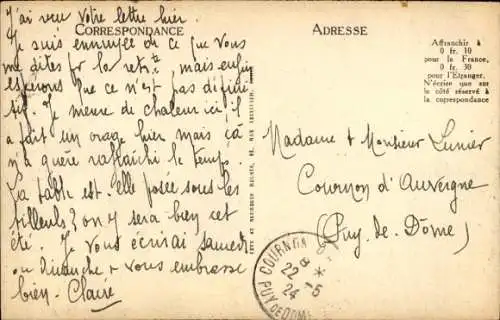 J'ai reçu votre lettre hier.
CORRESPONDANCE
Je suis ennuyée de ce que vous
me dites pr la retrte, mais enfin
espérons que ce n'est pas définitif.
Je meurs de chaleur ici il
a fait un orage hier mais ça
n'a guère rafraichi le temps.
La table est-elle posée sous les
tilleuls? on y sera bien cet
été. Je vous écrirai samedi
ou dimanche & vous embrasse
bien. Claire
ADRESSE
Affranchir à
0 fr. 10
pour la France,
0 fr. 30
pour l'Etranger.
N'écrire que sur
le côté réservé à
la correspondance
Madame & Monsieur Lunier
Cournon d'Auvergne
(Puy-de-Dôme)
COURNON
8 *
22 - 5
24
PUY DE DOME